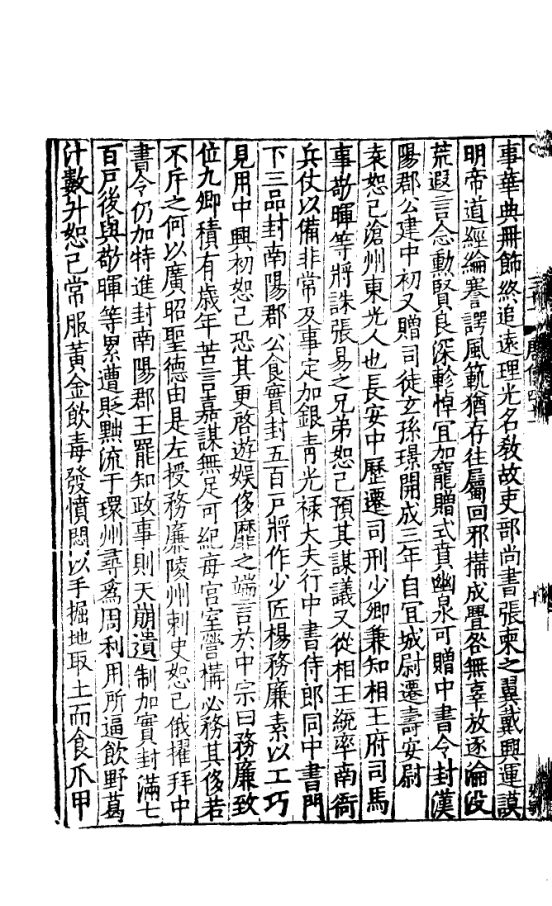 事華典冊飾終追遠理光名教故吏部尚書張柬之翼戴興運謨
明帝道經綸謇諤風範猶存往屬回邪構成釁咎無辜放逐淪没
荒遐言念勳賢良深軫悼宜加寵贈式賁幽泉可贈中書令封漢
陽郡公建中初又贈司徒玄孫璟開成三年自宜城尉遷壽安尉
袁恕己滄州東光人也長安中歷遷司刑少卿兼知相王府司馬
事敬暉等將誅張易之兄弟恕己預其謀議又從相王統率南衙
兵仗以備非常及事定加銀青光禄大夫行中書侍郎同中書門
下三品封南陽郡公食實封五百戸將作少匠楊務廉素以工巧
見用中興初恕己恐其更啓遊娱侈靡之端言於中宗曰務廉致
位九卿積有歲年苦言嘉謀無足可紀毎宫室營構必務其侈若
不斥之何以廣昭聖德由是左授務廉陵州刺史恕己俄擢拜中
書令仍加特進封南陽郡王罷知政事則天崩遺制加實封滿七
百戸後與敬暉等累遭貶黜流于環州尋爲周利用所逼飲野葛
汁數升恕己常服黄金飲毒發憤悶以手掘地取土而食爪甲